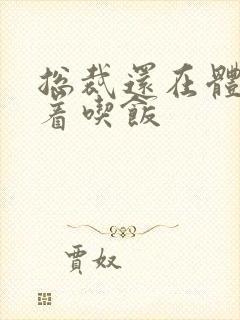 总裁還在體
着喫飯
賈奴